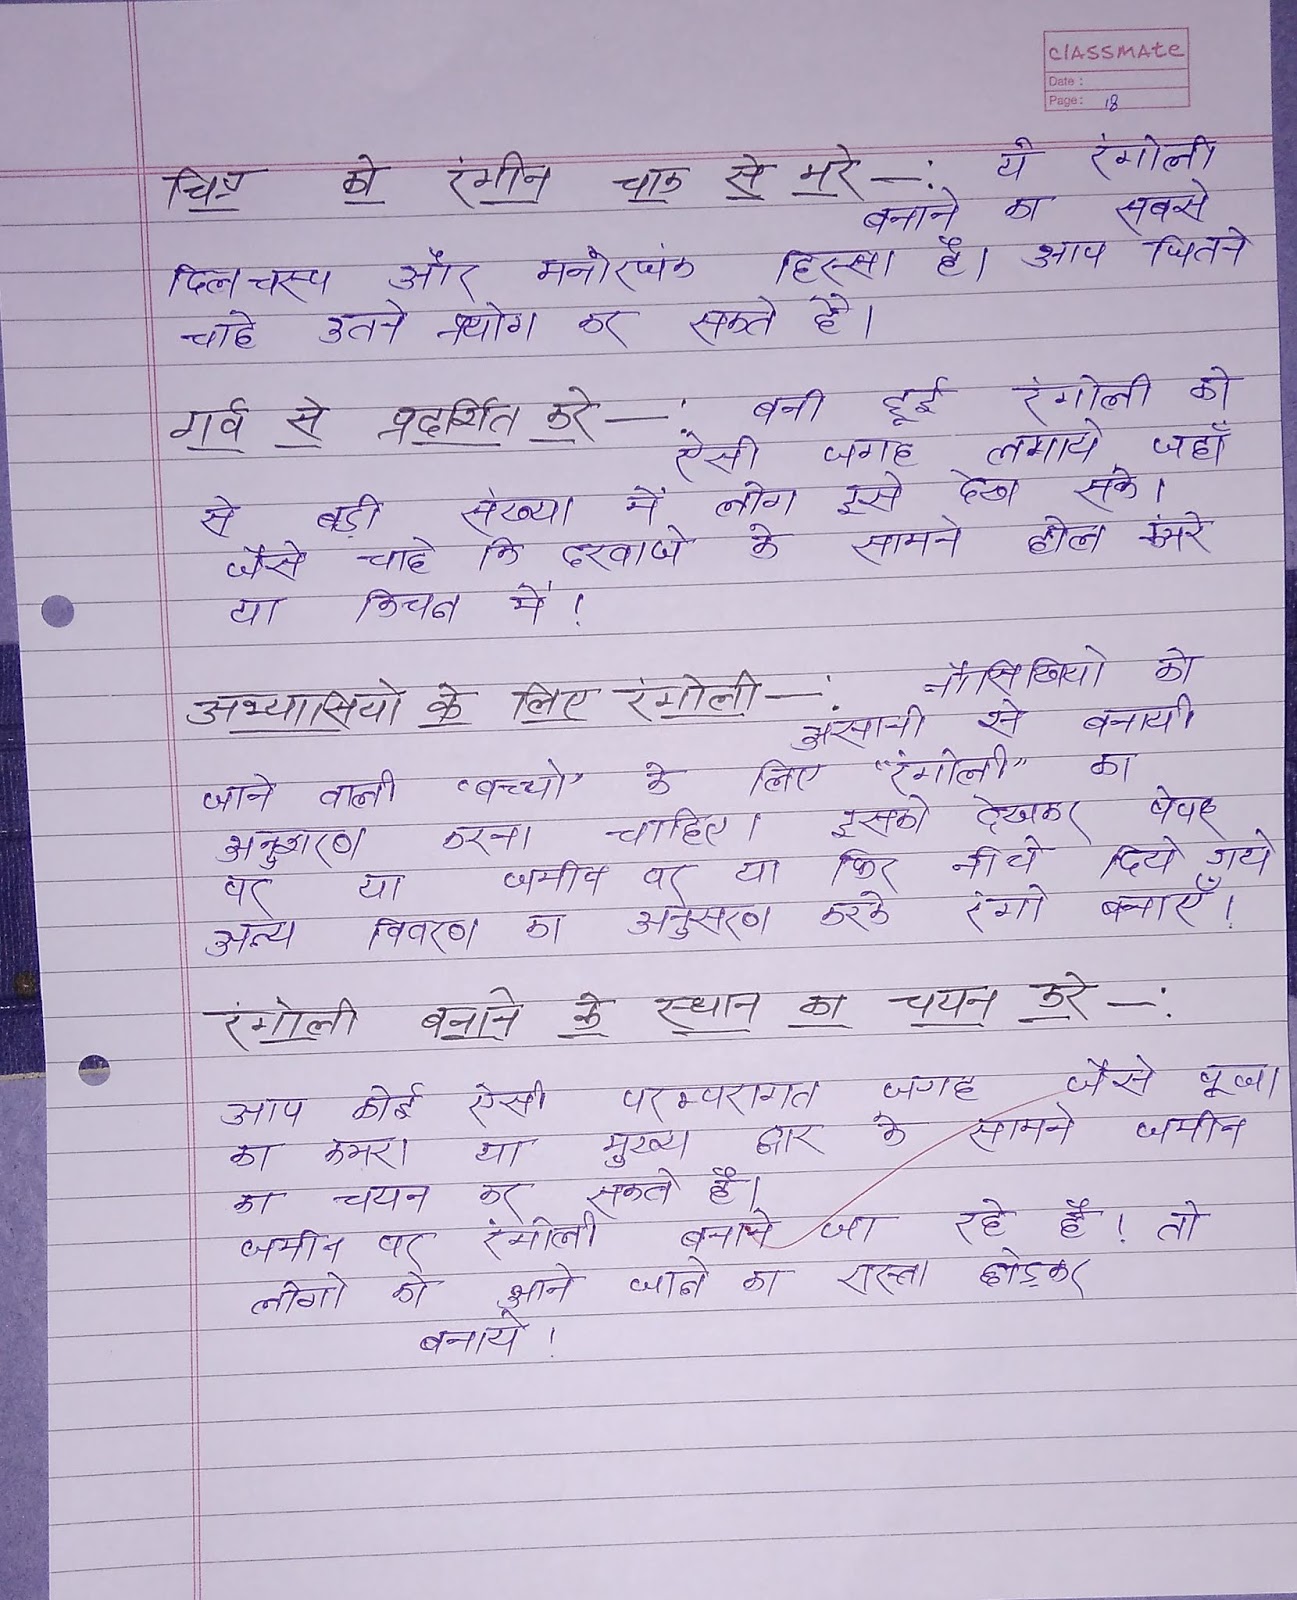 classmate
Date :
Page : 18
चित्र को रंगीन चाक से भरे —: ये रंगोली
बनाने का सबसे
दिलचस्प और मनोरजंक हिस्सा है। आप जितने
चाहे उतने प्रयोग कर सकते है।
गर्व से प्रदर्शित करे —: बनी हूई रंगोली को
ऐसी जगह लगाये जहाँ
से बड़ी संख्या में लोग इसे देख सके।
जैसे चाहे कि दरवाजे के सामने होल कमरे
या किचन में!
अभ्यासियो के लिए रंगोली —: नौसिखियो को
असानी से बनायी
जाने वाली "बच्चो" के लिए "रंगोली" का
अनुशरण करना चाहिए। इसको देखकर पेपर
पर या जमीन पर या फिर नीचे दिये गये
अन्य विवरण का अनुसरण करके रंगो बनाएँ।
रंगोली बनाने के स्थान का चयन करे —:
आप कोई ऐसी परम्परागत जगह जैसे पूजा
का कमरा या मुख्य द्वार के सामने जमीन
का चयन कर सकते है।
जमीन पर रंगोली बनाने जा रहे है! तो
लोगो को आने जाने का रास्ता छोड़कर
बनाये!